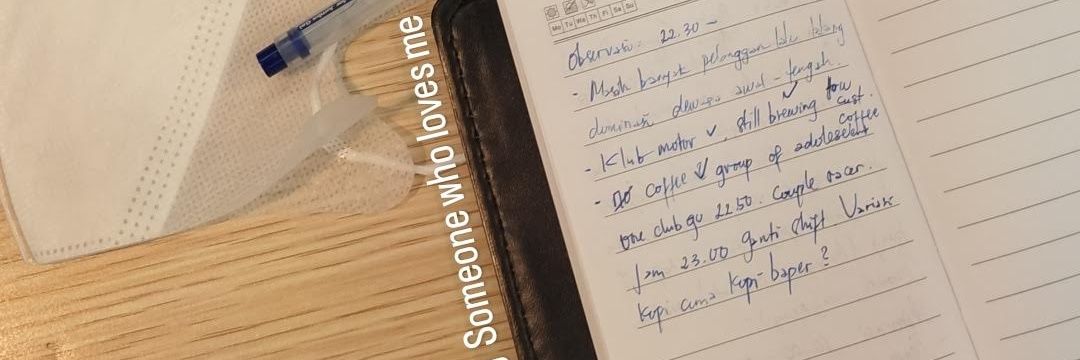 Someone who loves me
Mo Tu We Th Fr Sa Su
Observasi 22.30 -
- Masih banyak pelanggan lalu lalang
dominasi dewasa awal - tengah.
- Klub motor ✓, still brewing for cust. coffee
- coffee ✓ group of adolescent
one club go 22.50. Couple racer.
Jam 23.00 ganti shift
kopi cuma kopi-baper?